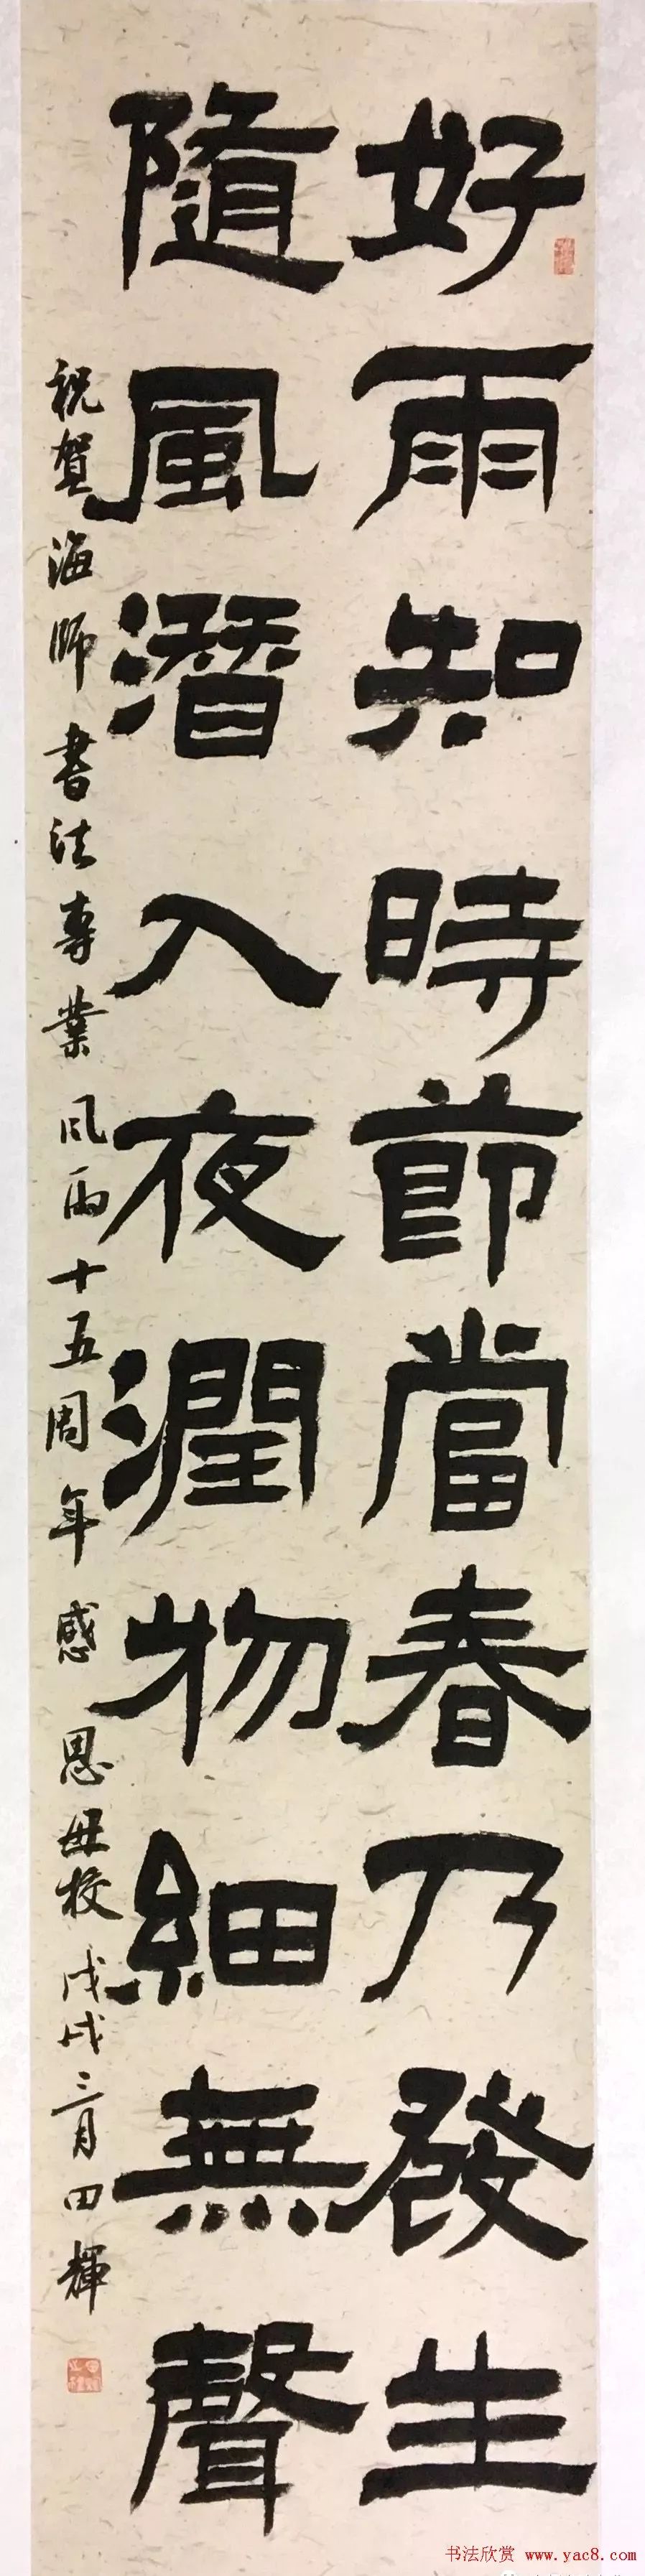 好雨知時節當春乃發生
隨風潛入夜潤物細無聲
祝賀海師書法專業風雨十五周年感恩母校戊戌三月田輝
书法欣赏 www.yac8.com